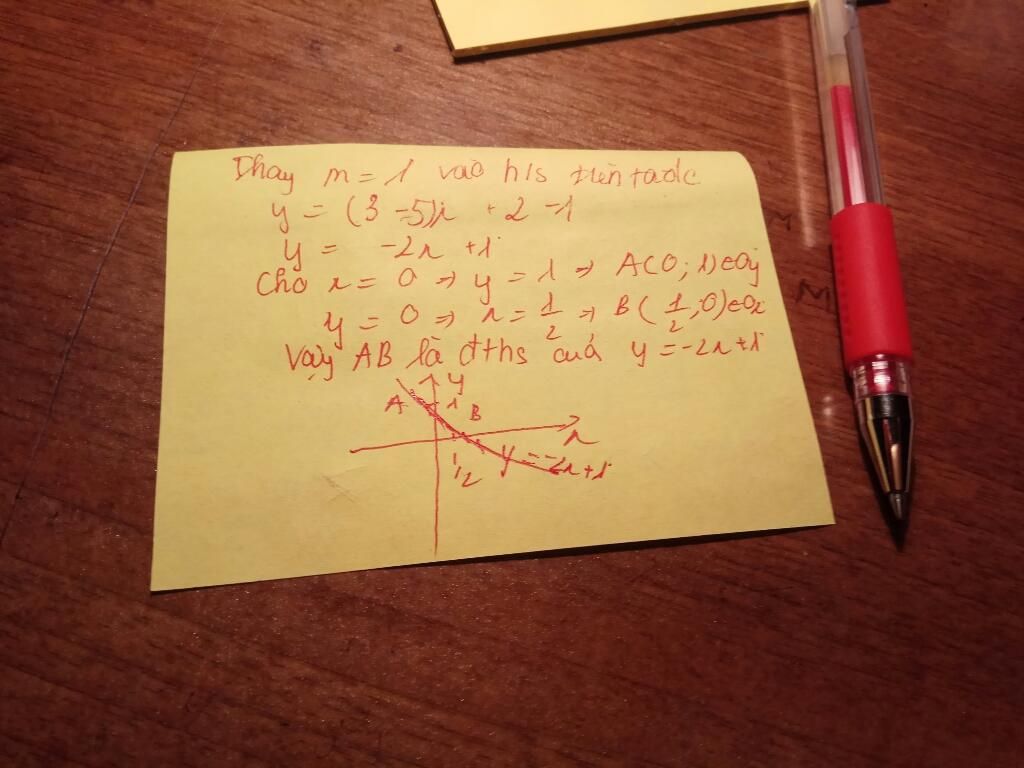 Thay m = 1 vào h/s trên ta đc
y = (3 - 5)x + 2 - 1
y = -2x + 1
Cho x = 0 => y = 1 => A(0; 1) ∈ Oy
y = 0 => x = 1/2 => B(1/2; 0) ∈ Ox
Vậy AB là đths của y = -2x + 1
y
A 1 B
x
1/2 y = -2x + 1
M
M